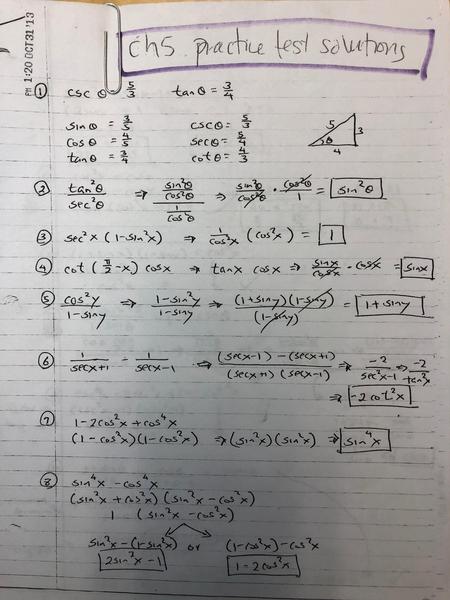 PM 1:20 OCT 31 '13
Ch5 practice test solutions
① csc θ 5/3 tan θ = 3/4
sin θ = 3/5 csc θ = 5/3
cos θ = 4/5 sec θ = 5/4
tan θ = 3/4 cot θ = 4/3
5 3 θ 4
② tan²θ / sec²θ ⇒ (sin²θ/cos²θ) / (1/cos²θ) ⇒ sin²θ/cos²θ · cos²θ/1 = sin²θ
③ sec²x (1-sin²x) ⇒ 1/cos²x (cos²x) = 1
④ cot (π/2 - x) cosx ⇒ tanx cosx ⇒ sinx/cosx · cosx = sinx
⑤ cos²y / 1-siny ⇒ 1-sin²y / 1-siny ⇒ (1+siny)(1-siny) / (1-siny) = 1+siny
⑥ 1/(secx+1) - 1/(secx-1) ⇒ (secx-1) - (secx+1) / (secx+1)(secx-1) ⇒ -2/(sec²x-1) ⇒ -2/tan²x
⇒ -2cot²x
⑦ 1-2cos²x + cos⁴x
(1-cos²x)(1-cos²x) ⇒ (sin²x)(sin²x) ⇒ sin⁴x
⑧ sin⁴x - cos⁴x
(sin²x + cos²x)(sin²x - cos²x)
1 (sin²x - cos²x)
sin²x - (1-sin²x) or (1-cos²x) - cos²x
2sin²x - 1 1-2cos²x